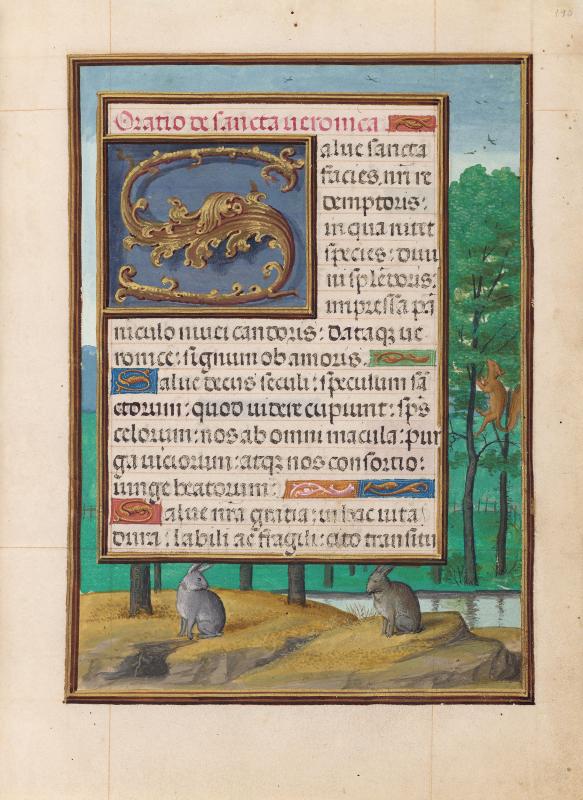 190
Oratio de sancta ueronica
Salue sancta
facies. nr̃i re
demptoris:
in qua nitet
species: diui
ni splẽdoris:
impressa pã
niculo niuei candoris: dataqꝫ ue
ronice: signum ob amoris.
Salue decus seculi: speculum sã
ctorum: quod uidere cupiunt: sp̃s
celorum: nos ab omni macula: pur
ga uiciorum: atqꝫ nos consortio:
iunge beatorum:
Salue nr̃a gratia: in hac uita
dura: labili ac fragili: cito transitu